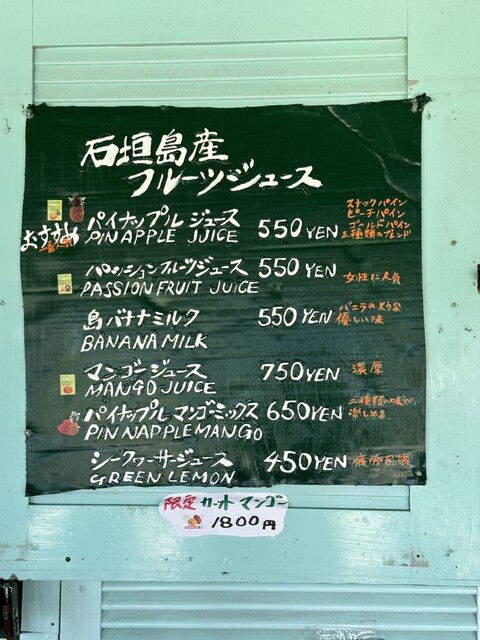 石垣島産
フルーツジュース
おすすめ
一番人気
パイナップル ジュース 550 YEN
PINAPPLE JUICE
スナックパイン
ピーチパイン
ゴールドパイン
三種類のブレンド
パッションフルーツジュース 550 YEN 女性に人気
PASSION FRUIT JUICE
島バナナミルク 550 YEN
BANANA MILK
バニラのような
優しい味
マンゴー ジュース 750 YEN 濃厚
MANGO JUICE
パイナップル マンゴーミックス 650 YEN
PINNAPPLE MANGO
二種類の味が
楽しめる
シークヮーサージュース 450 YEN 疲労回復
GREEN LEMON
限定 カット マンゴー
1800円